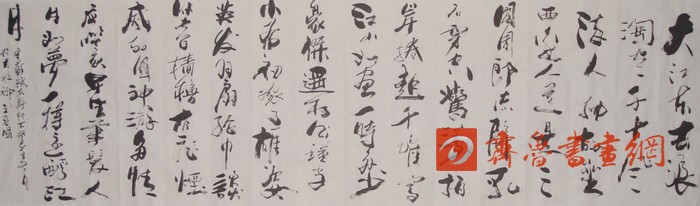 大江东去浪
淘尽千古风
流人物故垒
西边人道是三
國周郎赤壁乱
石穿空驚涛拍
岸捲起千堆雪
江山如画一时多少
豪傑遥想公瑾当年
小乔初嫁了雄姿
英发羽扇纶巾談
笑间檣橹灰飛煙
灭故國神游多情
应笑我早生華髮人
生如夢一樽还酹江
月
齊魯書畫網